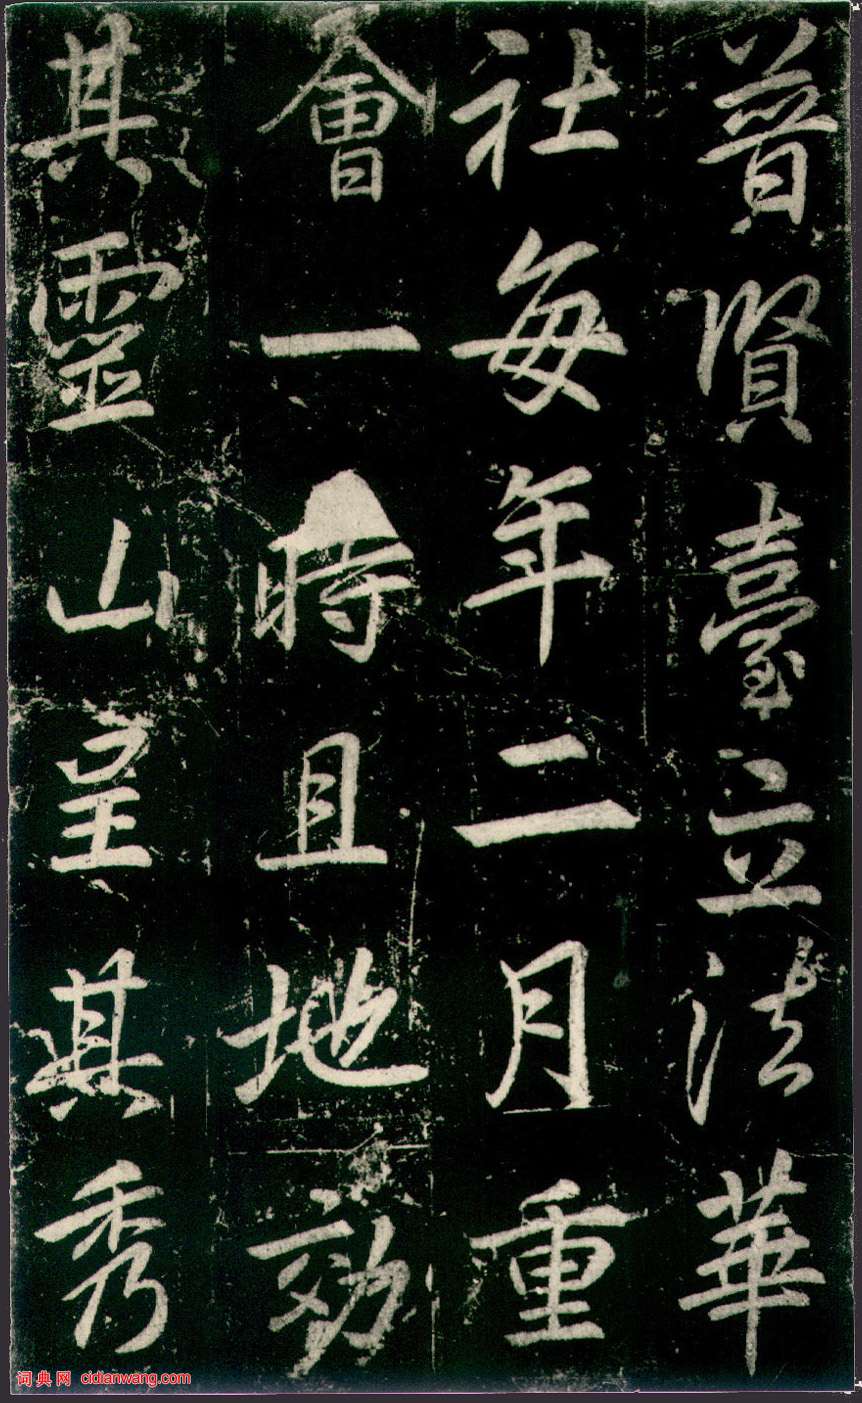 普賢臺立法華
社每年二月重
會一時且地効
其靈山呈其秀
词典网 cidianwang.com